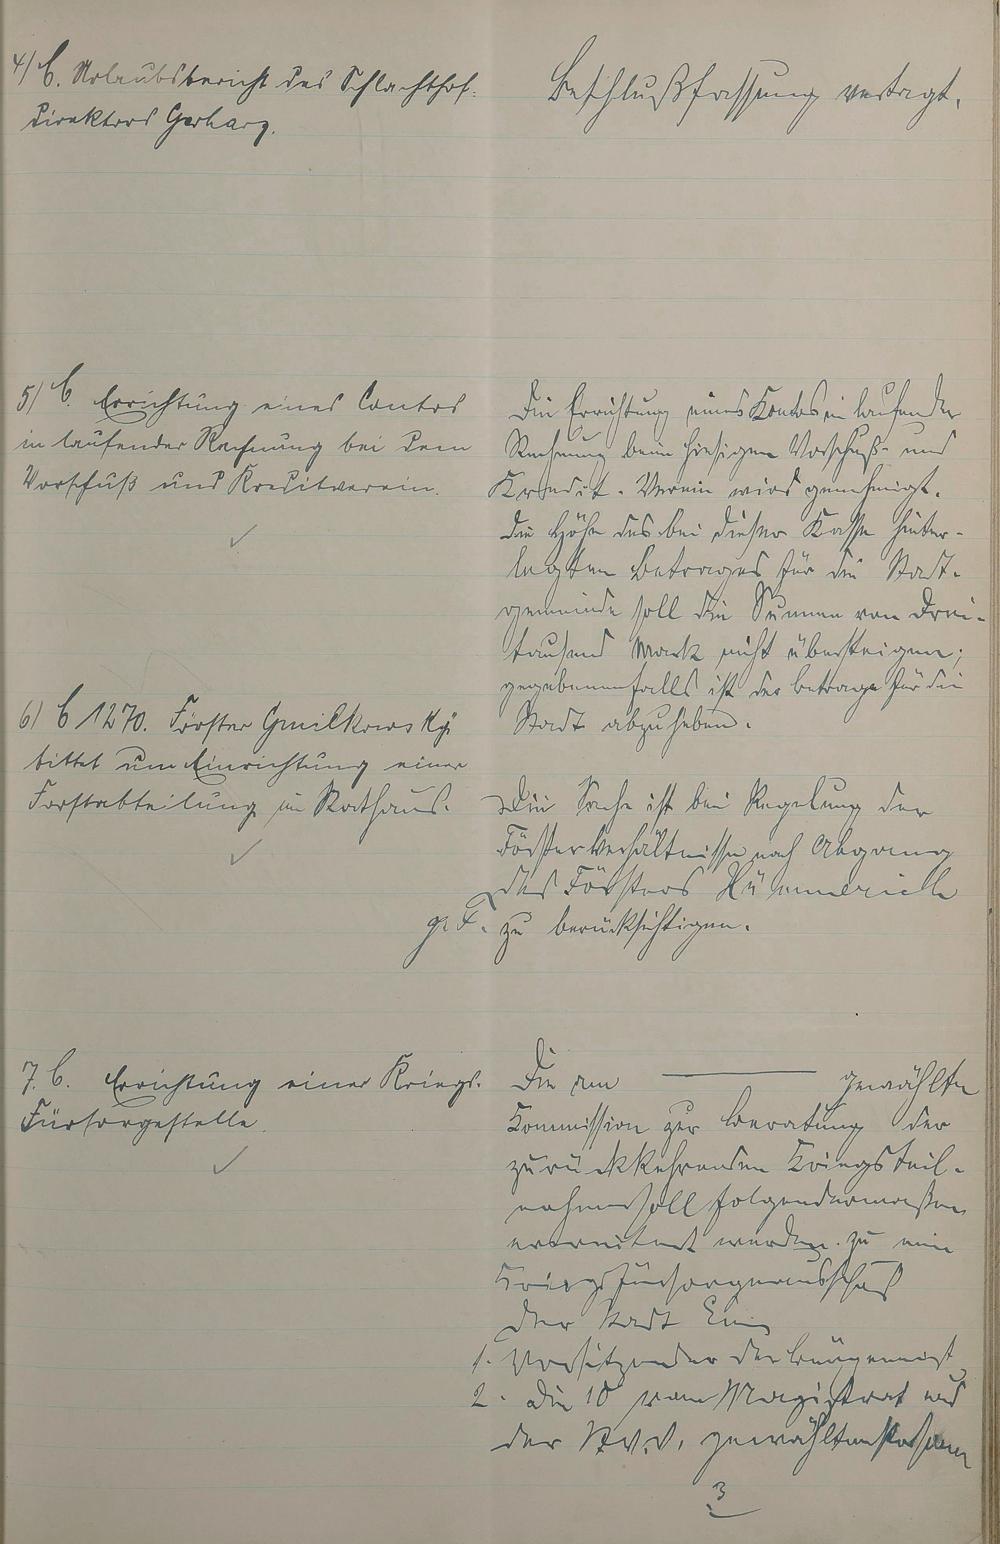 4/ C. Urlaubsbericht des Schlachthof-
direktors Gerharz.
Beschlußfassung vertagt.
5/ C. Errichtung eines Contos
in laufender Rechnung bei dem
Vorschuß und Kreditverein.
Die Errichtung eines Kontos in laufender
Rechnung beim hiesigen Vorschuß- und
Kredit-Verein wird genehmigt.
Die Höhe des bei dieser Kasse hinter-
legten Betrages für die Stadt-
gemeinde soll die Summe von Drei-
tausend Mark nicht übersteigen;
gegebenenfalls ist der Betrag für die
Stadt abzuheben.
6/ C 1270. Förster Gmilkowsky
bittet um Einrichtung einer
Forstabteilung im Rathaus.
Die Sache ist bei Regelung der
Försterverhältnisse nach Abgang
des Försters Hümmerich
zu berücksichtigen.
7. C. Errichtung einer Kriegs-
Fürsorgestelle.
Die am ——— gewählte
Kommission zur Beratung der
zurückkehrenden Kriegsteil-
nehmer soll folgendermaßen
erweitert werden zu ein
Kriegsfürsorgeausschuß
der Stadt Ems
1. Vorsitzender der Bürgermeist
2. Die 10 vom Magistrat und
der St.V.V. gewählten Personen
3